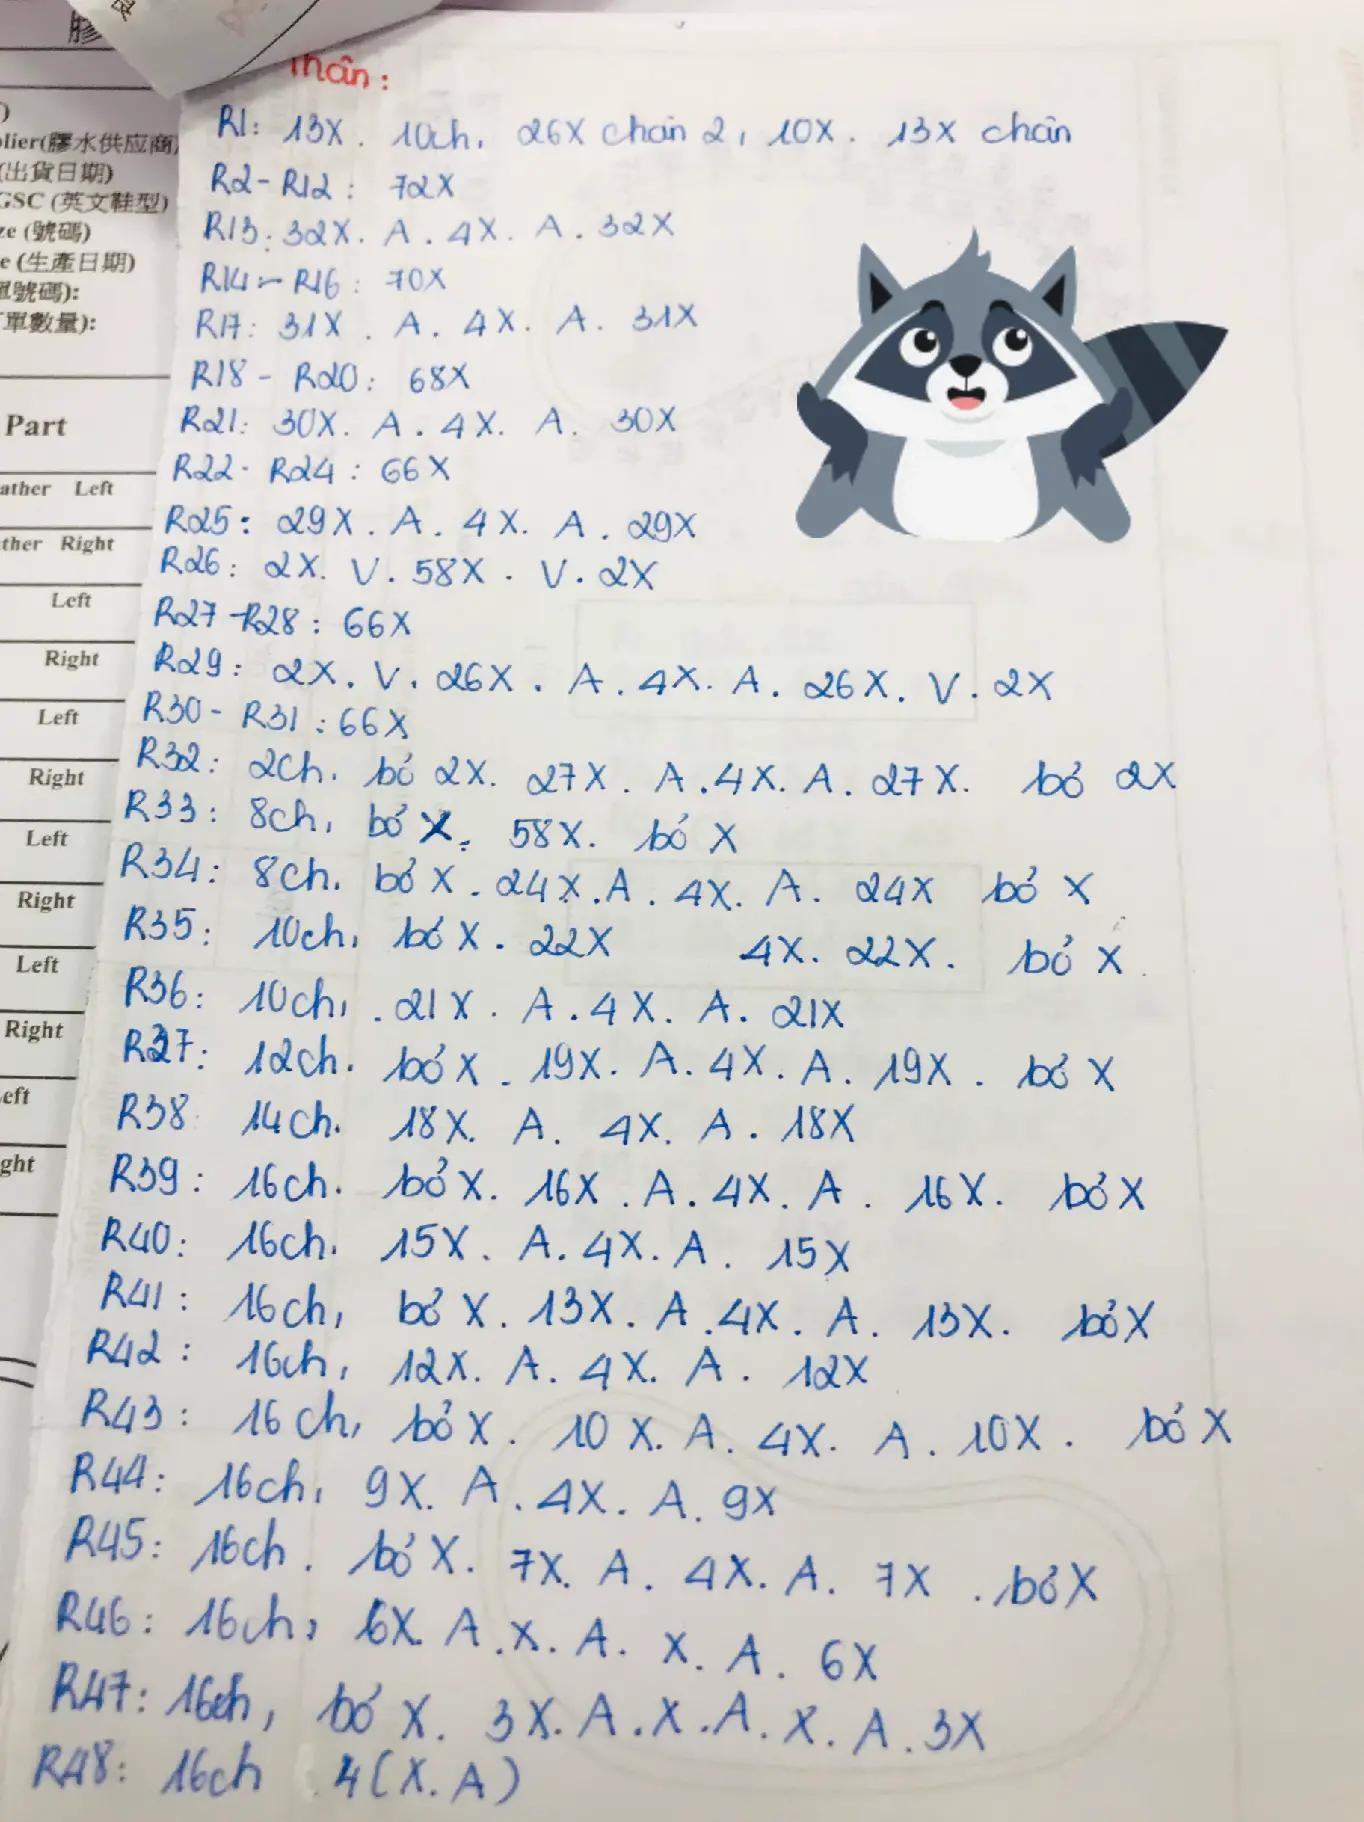 膠
plier(膠水供应商)
(出貨日期)
GSC (英文鞋型)
ze (號碼)
e (生產日期)
號碼):
單數量):
Part
ather Left
ther Right
Left
Right
Left
Right
Left
Right
Left
Right
eft
ght
Thân:
R1: 13X. 10ch, 26X chân 2, 10X. 13X chân
R2-R12: 72X
R13: 32X. A. 4X. A. 32X
R14-R16: 70X
R17: 31X. A. 4X. A. 31X
R18 - R20: 68X
R21: 30X. A. 4X. A. 30X
R22- R24: 66X
R25: 29X. A. 4X. A. 29X
R26: 2X. V. 58X. V. 2X
R27-R28: 66X
R29: 2X. V. 26X. A. 4X. A. 26X. V. 2X
R30 - R31: 66X
R32: 2ch. bỏ 2X. 27X. A.4X. A. 27X. bỏ 2X
R33: 8ch, bỏ X. 58X. bỏ X
R34: 8ch. bỏ X. 24X.A. 4X. A. 24X bỏ X
R35: 10ch, bỏ X. 22X 4X. 22X. bỏ X.
R36: 10ch, .21X. A.4X. A. 21X
R37: 12ch. bỏ X. 19X. A. 4X. A. 19X. bỏ X
R38: 14ch. 18X. A. 4X. A. 18X
R39: 16ch. bỏ X. 16X. A. 4X. A. 16X. bỏ X
R40: 16ch. 15X. A. 4X. A. 15X
R41: 16ch, bỏ X. 13X. A.4X. A. 13X. bỏ X
R42: 16ch, 12X. A. 4X. A. 12X
R43: 16ch, bỏ X. 10X. A. 4X. A. 10X. bỏ X
R44: 16ch, 9X. A.4X. A. 9X
R45: 16ch. bỏ X. 7X. A. 4X. A. 7X. bỏ X
R46: 16ch, 6X. A.X. A. X. A. 6X
R47: 16ch, bỏ X. 3X. A.X.A. X. A. 3X
R48: 16ch 4(X.A)